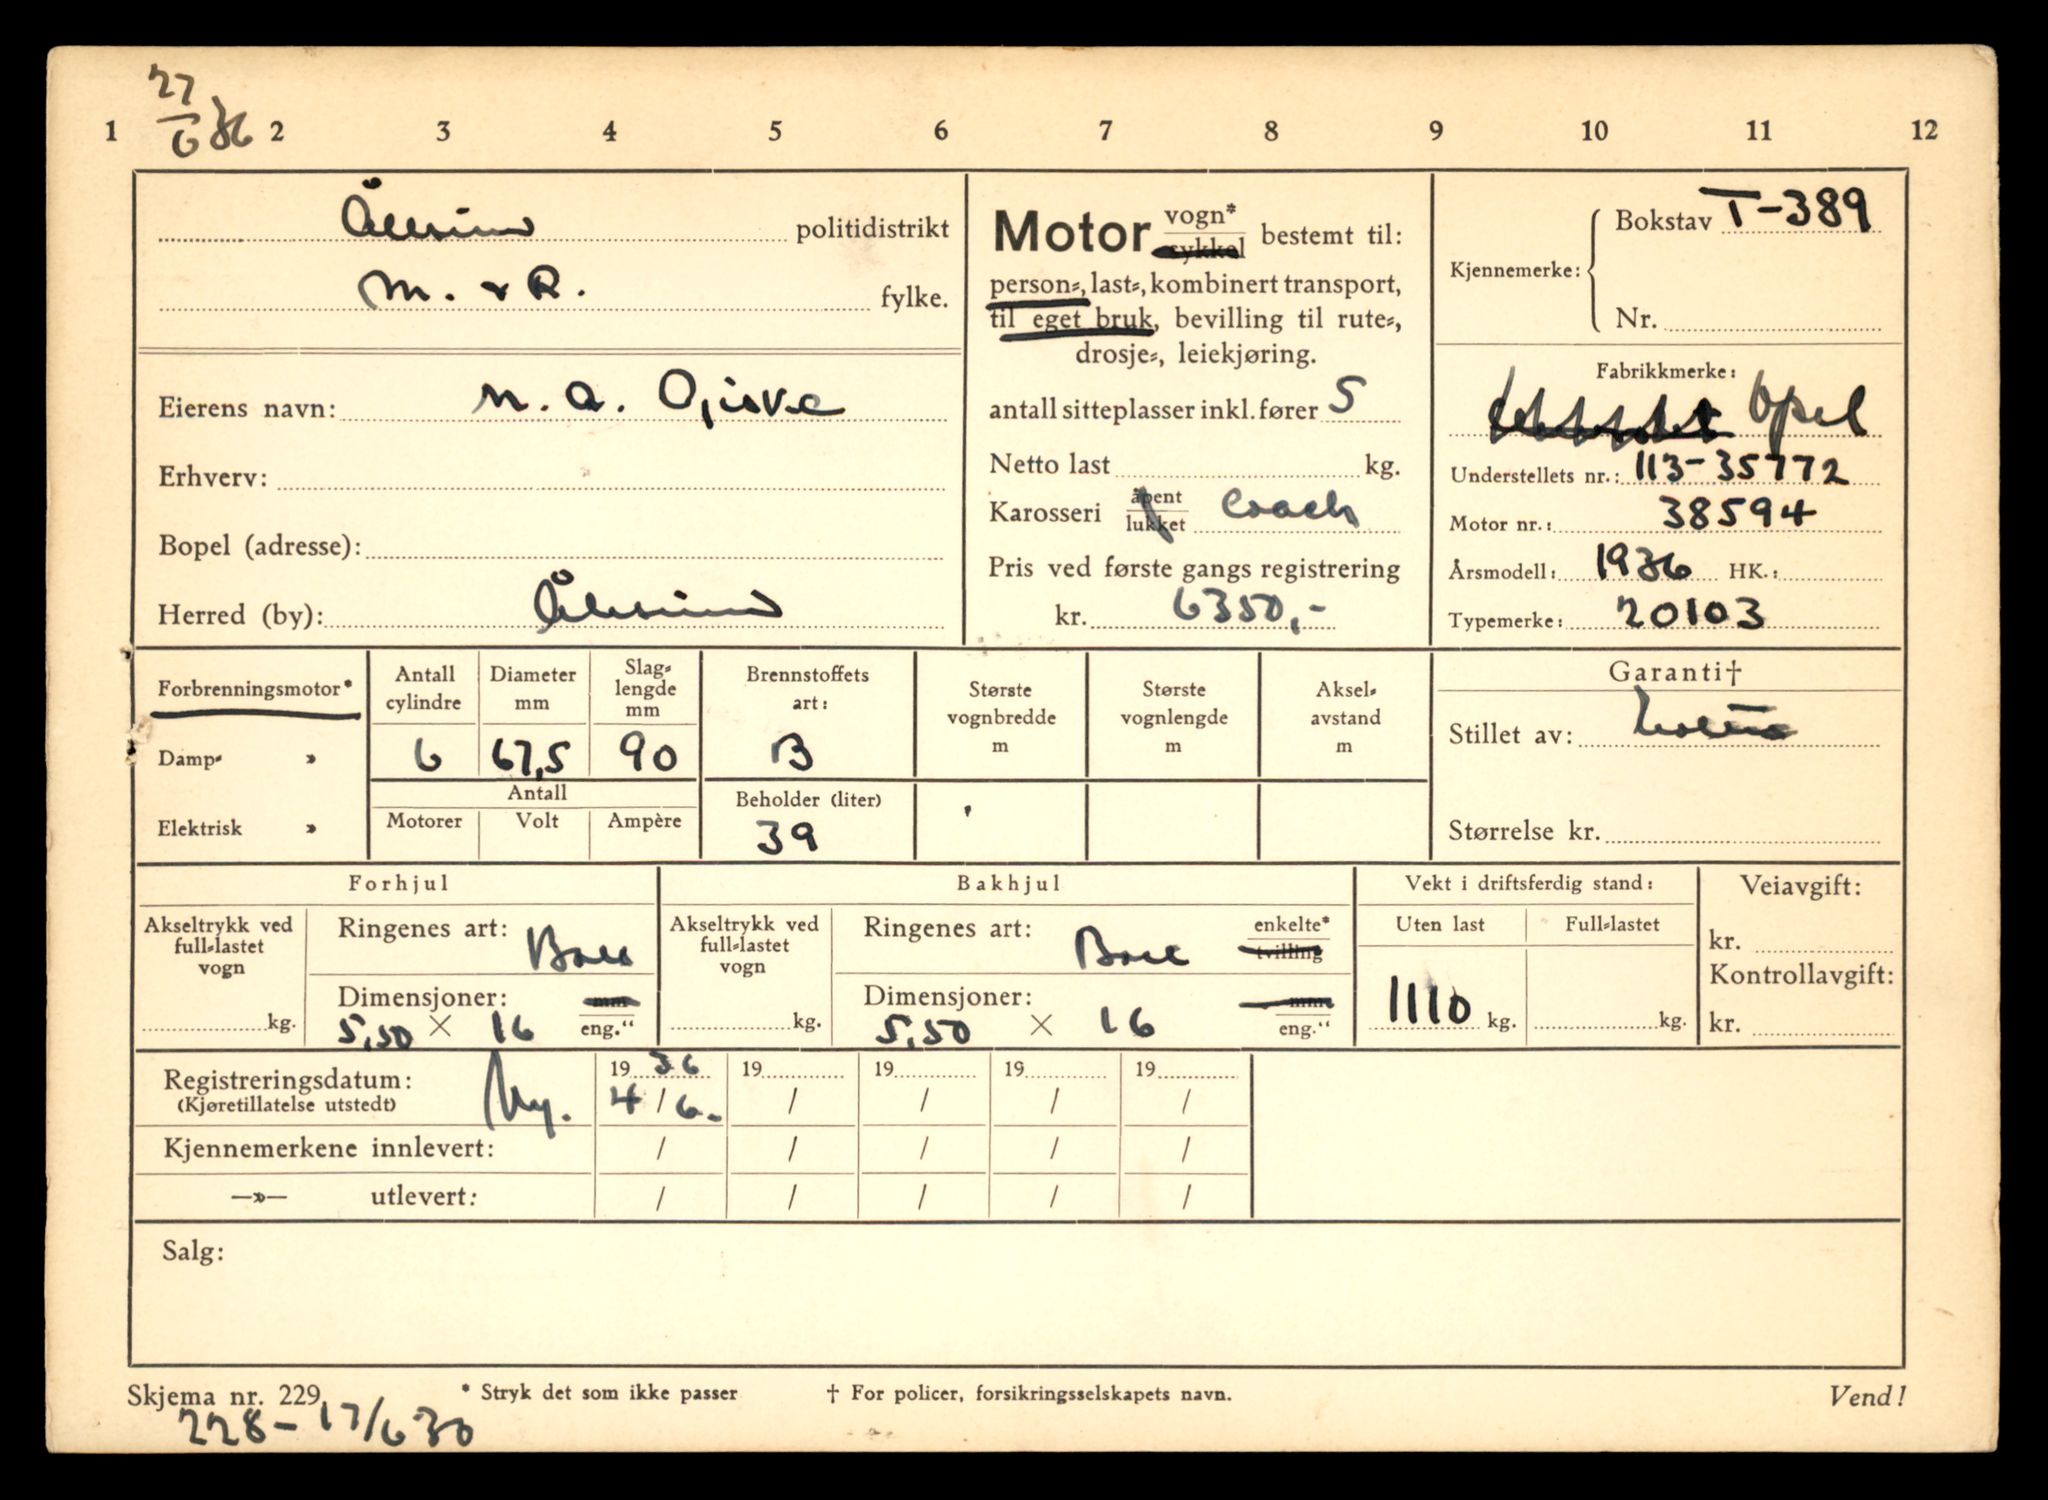 27/6 36
1 2 3 4 5 6 7 8 9 10 11 12
Ålesund politidistrikt
M. & R. fylke.
Eierens navn: N. A. Gjerve
Erhverv:
Bopel (adresse):
Herred (by): Ålesund
Motor vogn* sykkel bestemt til:
person-, last-, kombinert transport,
til eget bruk, bevilling til rute-,
drosje-, leiekjøring.
antall sitteplasser inkl. fører 5
Netto last kg.
Karosseri åpent lukket coach
Pris ved første gangs registrering
kr. 6350,-
Kjennemerke: Bokstav T-389
Nr.
Fabrikkmerke:
Opel
Understellets nr.: 113-35772
Motor nr.: 38594
Årsmodell: 1936 HK.:
Typemerke: 20103
Forbrenningsmotor*
Damp- »
Elektrisk »
Antall cylindre 6
Diameter mm 67,5
Slag-lengde mm 90
Antall
Motorer Volt Ampère
Brennstoffets art: B
Beholder (liter) 39
Største vognbredde m
Største vognlengde m
Aksel-avstand m
Garanti†
Stillet av:
Størrelse kr.
Forhjul
Akseltrykk ved full-lastet vogn kg.
Ringenes art: Ball
Dimensjoner: mm
5,50 × 16 eng."
Bakhjul
Akseltrykk ved full-lastet vogn kg.
Ringenes art: Ball enkelte* tvilling
Dimensjoner: mm
5,50 × 16 eng."
Vekt i driftsferdig stand:
Uten last Full-lastet
1110 kg. kg.
Veiavgift:
kr.
Kontrollavgift:
kr.
Registreringsdatum: Ny. 19 36 19 19 19 19
(Kjøretillatelse utstedt) 4/6. / / / /
Kjennemerkene innlevert: / / / / /
—»— utlevert: / / / / /
Salg:
Skjema nr. 229. * Stryk det som ikke passer † For policer, forsikringsselskapets navn. Vend!
228-17/6 30